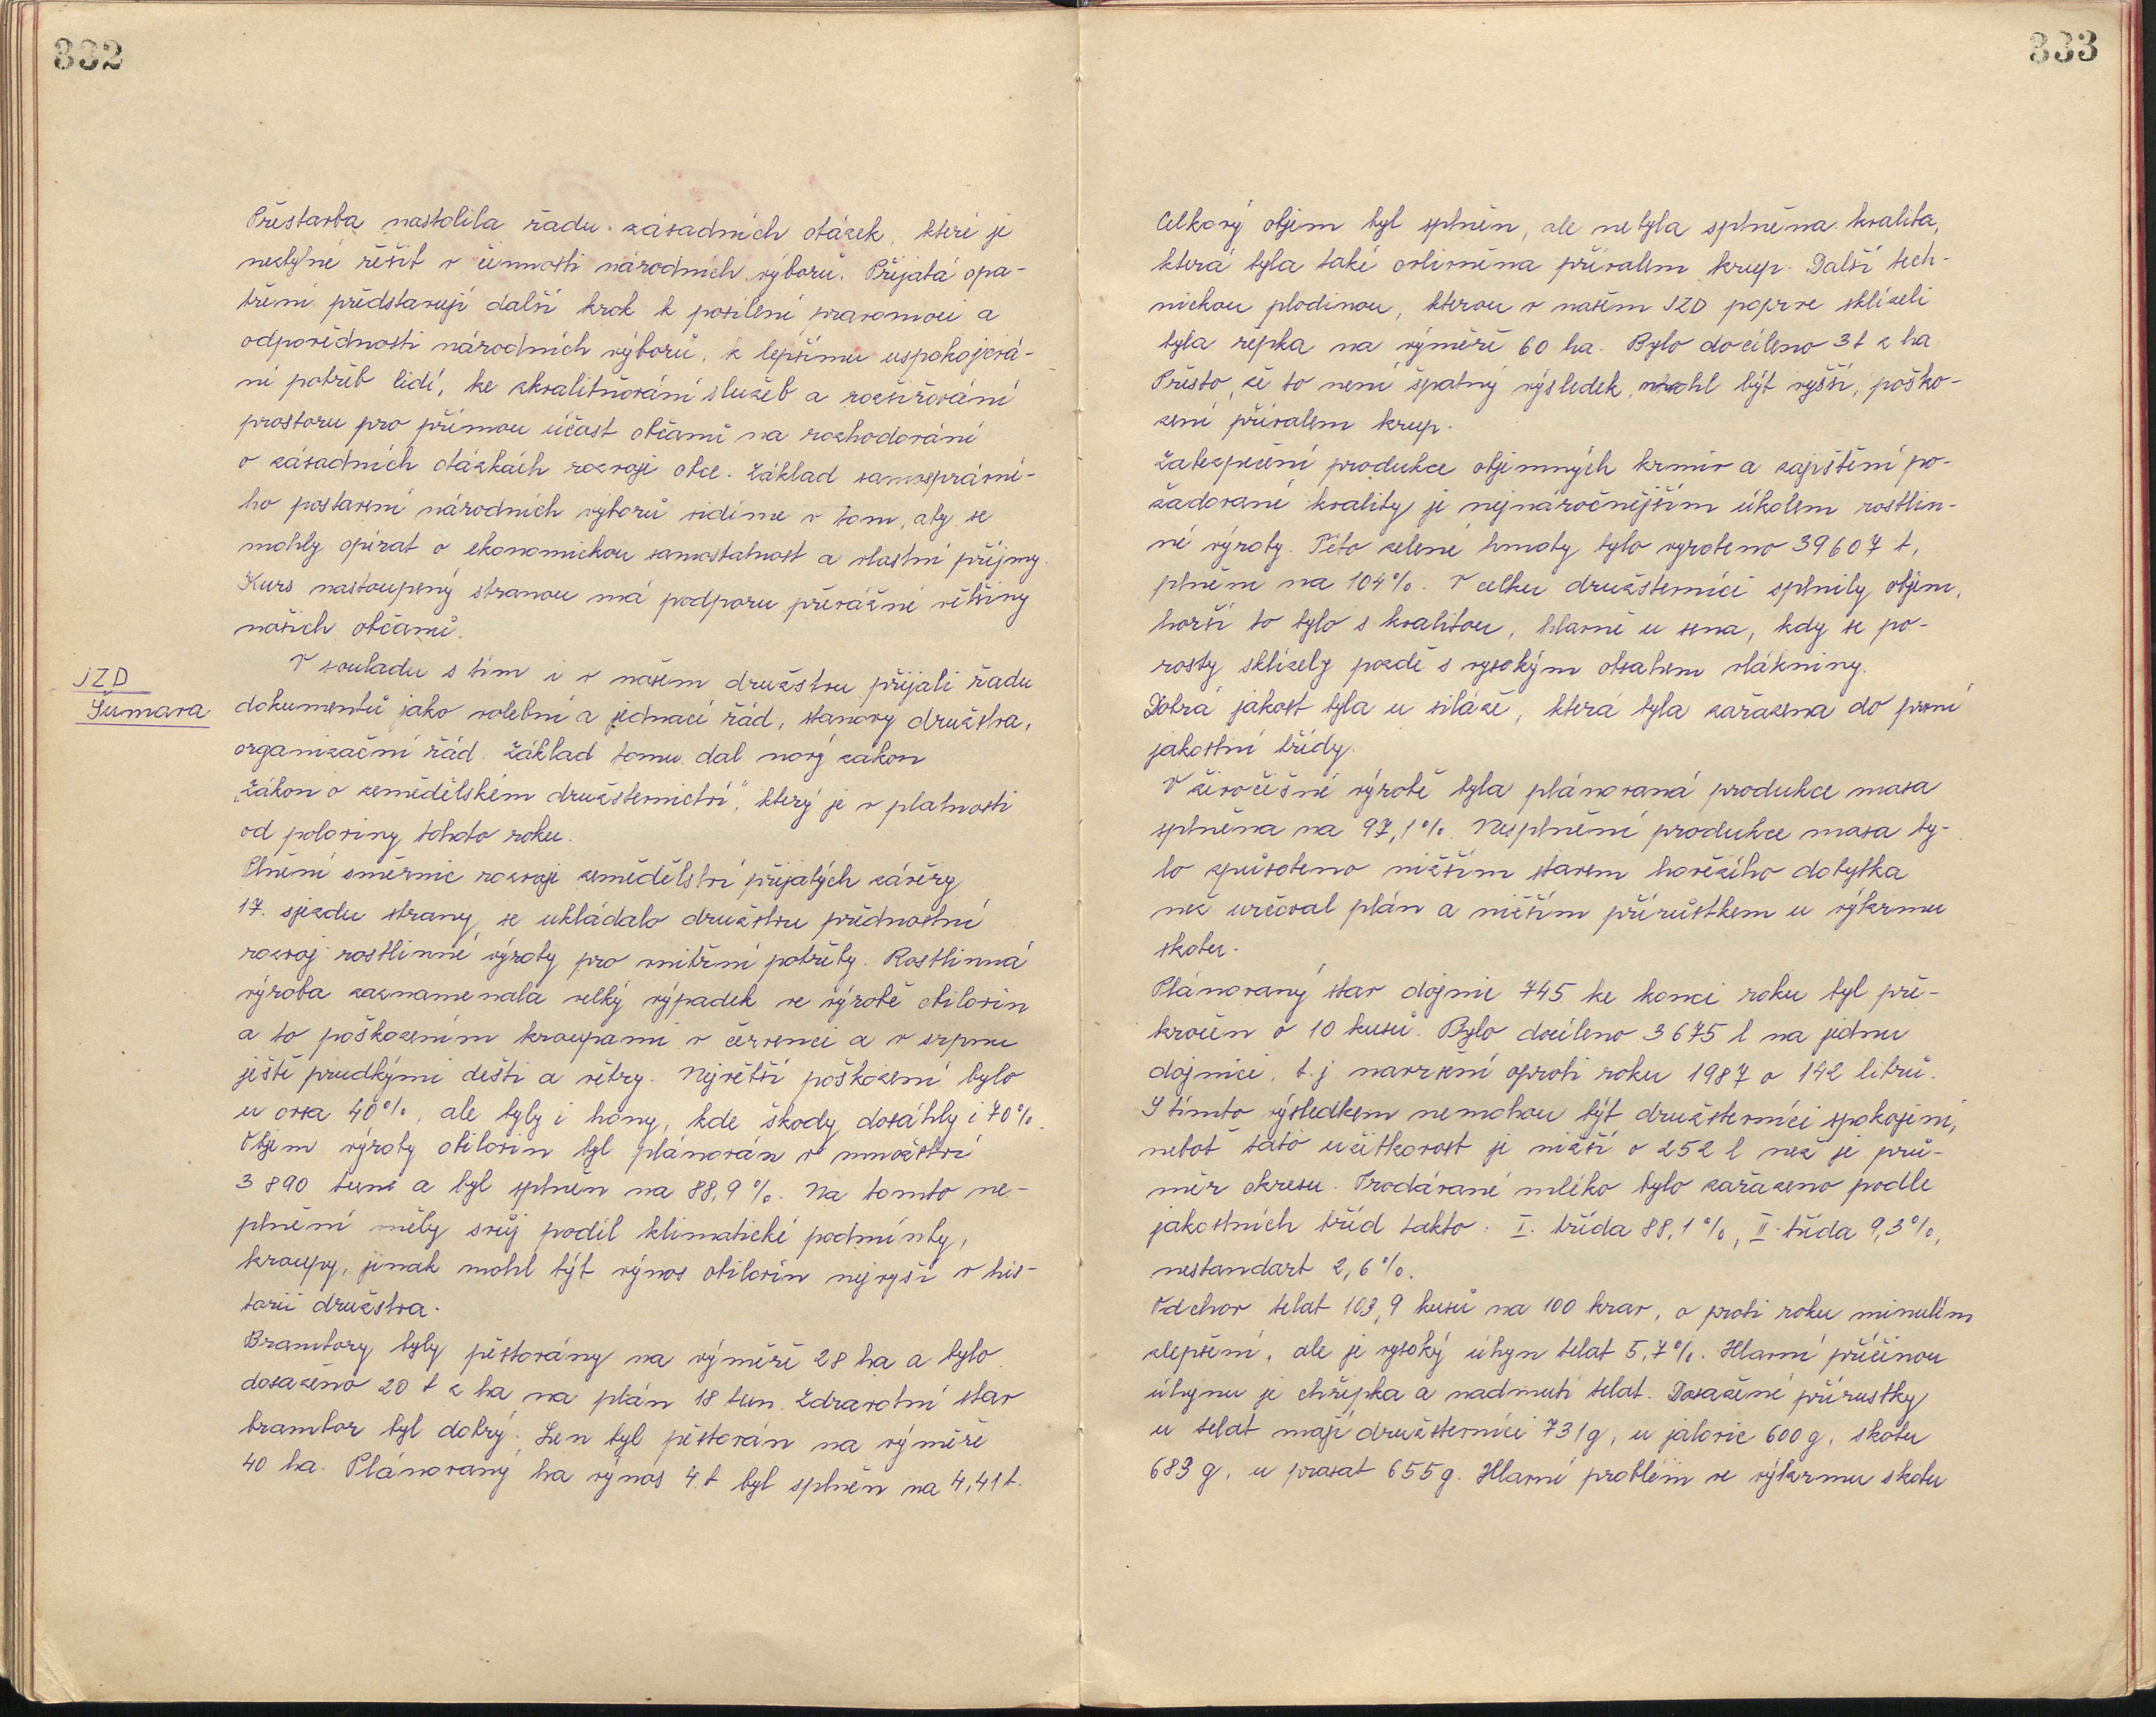 332
Přestavba nastolila řadu zásadních otázek, které je
nezbytné řešit v činnosti národních výborů. Přijatá opa-
tření představují další krok k posílení pravomoci a
odpovědnosti národních výborů, k lepšímu uspokojová-
ní potřeb lidí, ke zkvalitňování služeb a rozšiřování
prostoru pro přímou účast občanů na rozhodování
o zásadních otázkách rozvoje obce. Základ samosprávné-
ho postavení národních výborů vidíme v tom, aby se
mohly opírat o ekonomickou samostatnost a vlastní příjmy.
Kurs nastoupený stranou má podporu převážné většiny
našich občanů.
JZD
Šumava
V souladu s tím i v našem družstvu přijali řadu
dokumentů jako volební a jednací řád, stanovy družstva,
organizační řád. Základ tomu dal nový zákon
„Zákon o zemědělském družstevnictví", který je v platnosti
od poloviny tohoto roku.
Plnění směrnic rozvoje zemědělství přijatých závěry
17. sjezdu strany se ukládalo družstvu přednostní
rozvoj rostlinné výroby pro vnitřní potřeby. Rostlinná
výroba zaznamenala velký výpadek ve výrobě obilovin
a to poškozením kroupami v červenci a v srpnu
ještě prudkými dešti a větry. Největší poškození bylo
u ovsa 40%, ale byly i hony, kde škody dosáhly i 70%.
Objem výroby obilovin byl plánován v množství
3 890 tun a byl splněn na 88,9%. Na tomto ne-
plnění měly svůj podíl klimatické podmínky,
kroupy, jinak mohl být výnos obilovin nejvyší v his-
torii družstva.
Brambory byly pěstovány na výměře 28 ha a bylo
dosaženo 20 t z ha na plán 18 tun. Zdravotní stav
brambor byl dobrý. Len byl pěstován na výměře
40 ha. Plánovaný ha výnos 4 t byl splněn na 4,41 t.
333
Celkový objem byl splněn, ale nebyla splněna kvalita,
která byla také ovlivněna přívalem krup. Další tech-
nickou plodinou, kterou v našem JZD poprve sklízeli
byla řepka na výměře 60 ha. Bylo docíleno 3 t z ha.
Přesto, že to není špatný výsledek, mohl být vyšší, poško-
zení přívalem krup.
Zabezpečení produkce objemných krmiv a zajištění po-
žadované kvality je nejnáročnějším úkolem rostlin-
né výroby. Této zelené hmoty bylo vyrobeno 39607 t,
plněm na 104%. V celku družstevníci splnily objem,
horší to bylo s kvalitou, hlavně u sena, kdy se po-
rosty sklízely pozdě s vysokým obsahem vlákniny.
Dobrá jakost byla u siláže, která byla zařazena do první
jakostní třídy.
V živočišné výrobě byla plánovaná produkce masa
splněna na 97,1%. Nesplnění produkce masa by-
lo způsobeno nižším stavem hovězího dobytka
než určoval plán a nižším přírůstkem u výkrmu
skotu.
Plánovaný stav dojnic 745 ke konci roku byl pře-
kročen o 10 kusů. Bylo docíleno 3 675 l na jednu
dojnici, t.j. navršení oproti roku 1987 o 142 litrů.
S tímto výsledkem nemohou být družstevníci spokojeni,
neboť tato užitkovost je nižší o 252 l než je prů-
měr okresu. Prodávané mléko bylo zařazeno podle
jakostních tříd takto: I. třída 88,1%, II. třída 9,3%,
nestandart 2,6%.
Odchov telat 103,9 kusů na 100 krav, o proti roku minulém
zlepšení, ale je vysoký úhyn telat 5,7%. Hlavní příčinou
úhynu je chřipka a nadmutí telat. Dosažené přírustky
u telat mají družstevníci 731g, u jalovic 600g, skotu
683 g, u prasat 655g. Hlavní problém ve výkrmu skotu